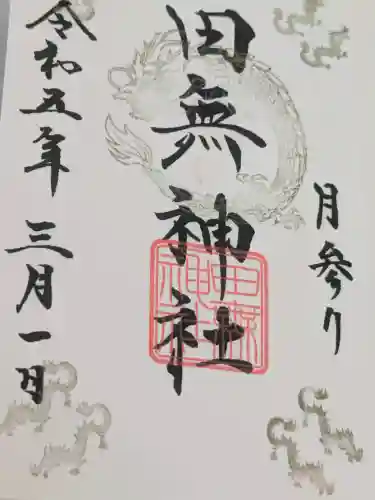 月参り
田無神社
令和五年三月一日
田無神社